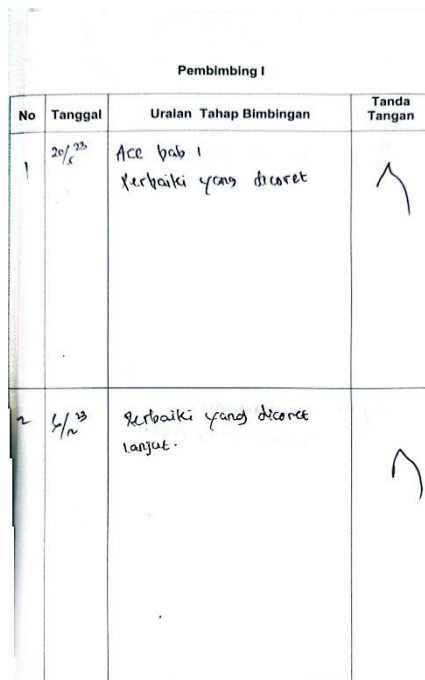 Pembimbing I
No Tanggal Uraian Tahap Bimbingan Tanda Tangan
1 20/5 23 Acc bab 1
Perbaiki yang dicoret
2 23 Perbaiki yang dicoret
Lanjut.